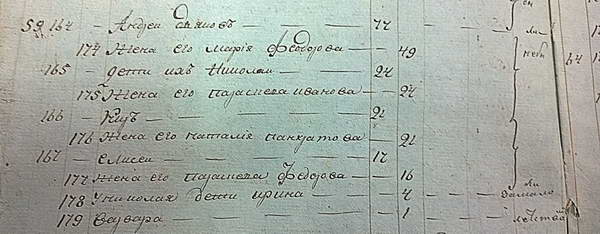 59 164 — Андреи — 77
174 Жена его Мария Феодорова — 49
165 — дети ихъ Николаи — 24
175 Жена его Параскева Иванова — 24
166 — — 21
176 Жена его Наталия Панкратова — 21
167 — Елисеи — 17
177 Жена его Параскева Феодорова — 16
178 У Николая дети Ирина — 4
179 Варвара — 1